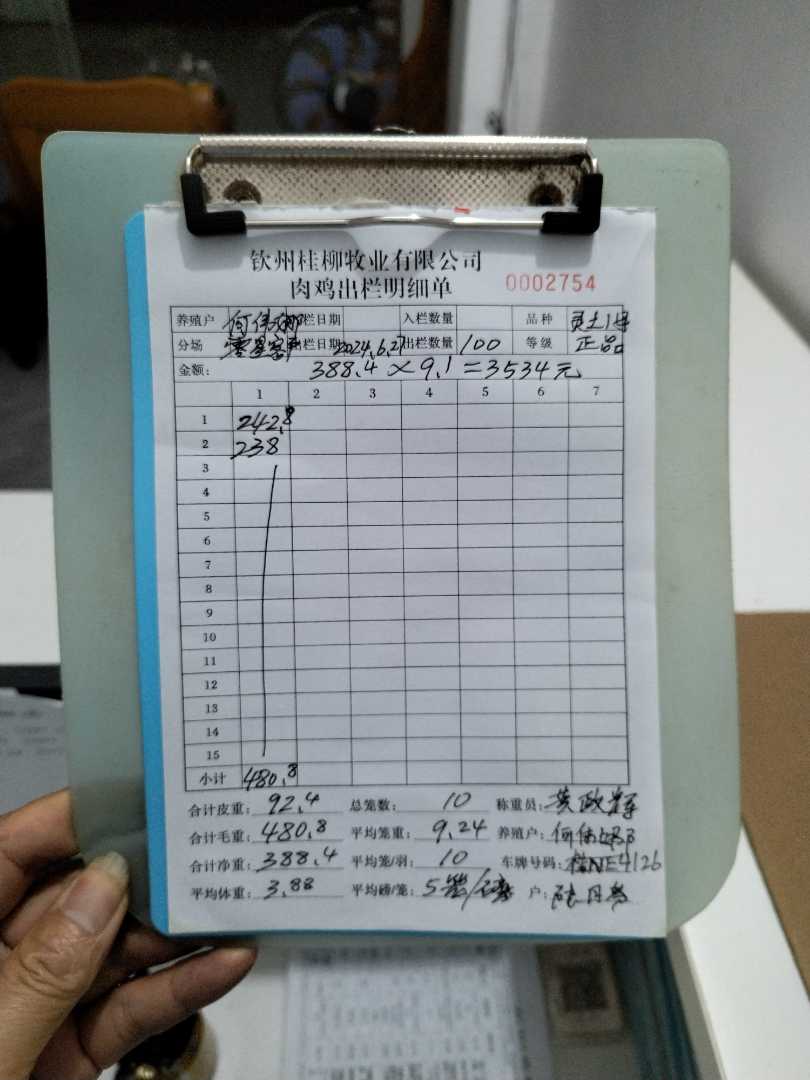 钦州桂柳牧业有限公司
肉鸡出栏明细单 0002754
养殖户 何 栏日期 入栏数量 品种 土1号
分场 零星客户 栏日期 2024.6.27 出栏数量 100 等级 正品
金额: 388.4×9.1=3534元
1 2 3 4 5 6 7
1 242.8
2 238
3
4
5
6
7
8
9
10
11
12
13
14
15
小计 480.8
合计皮重: 92.4 总笼数: 10 称重员: 黄政
合计毛重: 480.8 平均笼重: 9.24 养殖户: 何
合计净重: 388.4 平均笼/羽: 10 车牌号码: 桂NE4126
平均体重: 3.88 平均磅/笼: 5笼/磅 户: